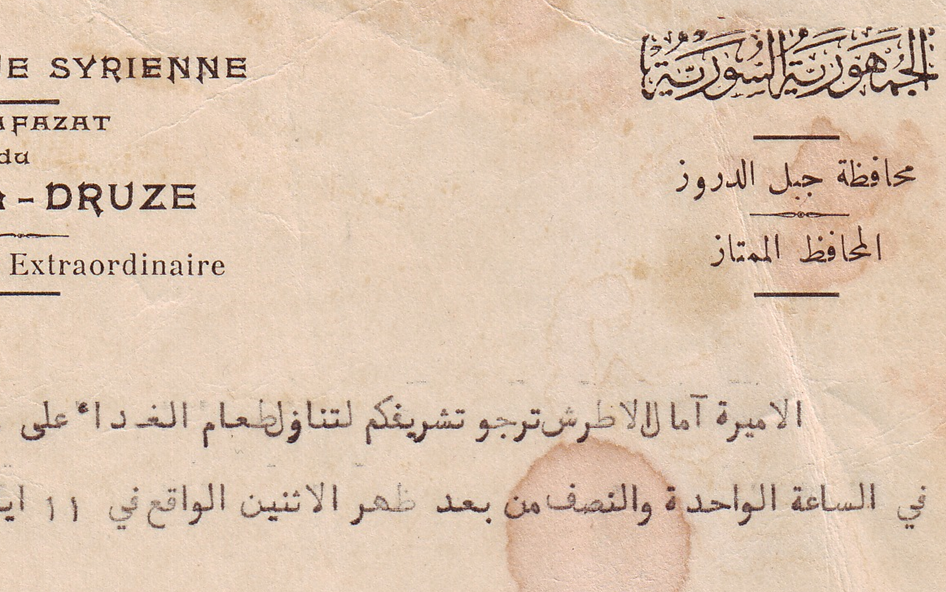 E SYRIENNE
AFAZAT
du
-DRUZE
Extraordinaire
الجمهورية السورية
محافظة جبل الدروز
المحافظ الممتاز
الاميرة آمال الاطرش ترجو تشريفكم لتناول طعام الغداء على
في الساعة الواحدة والنصف من بعد ظهر الاثنين الواقع في ١١